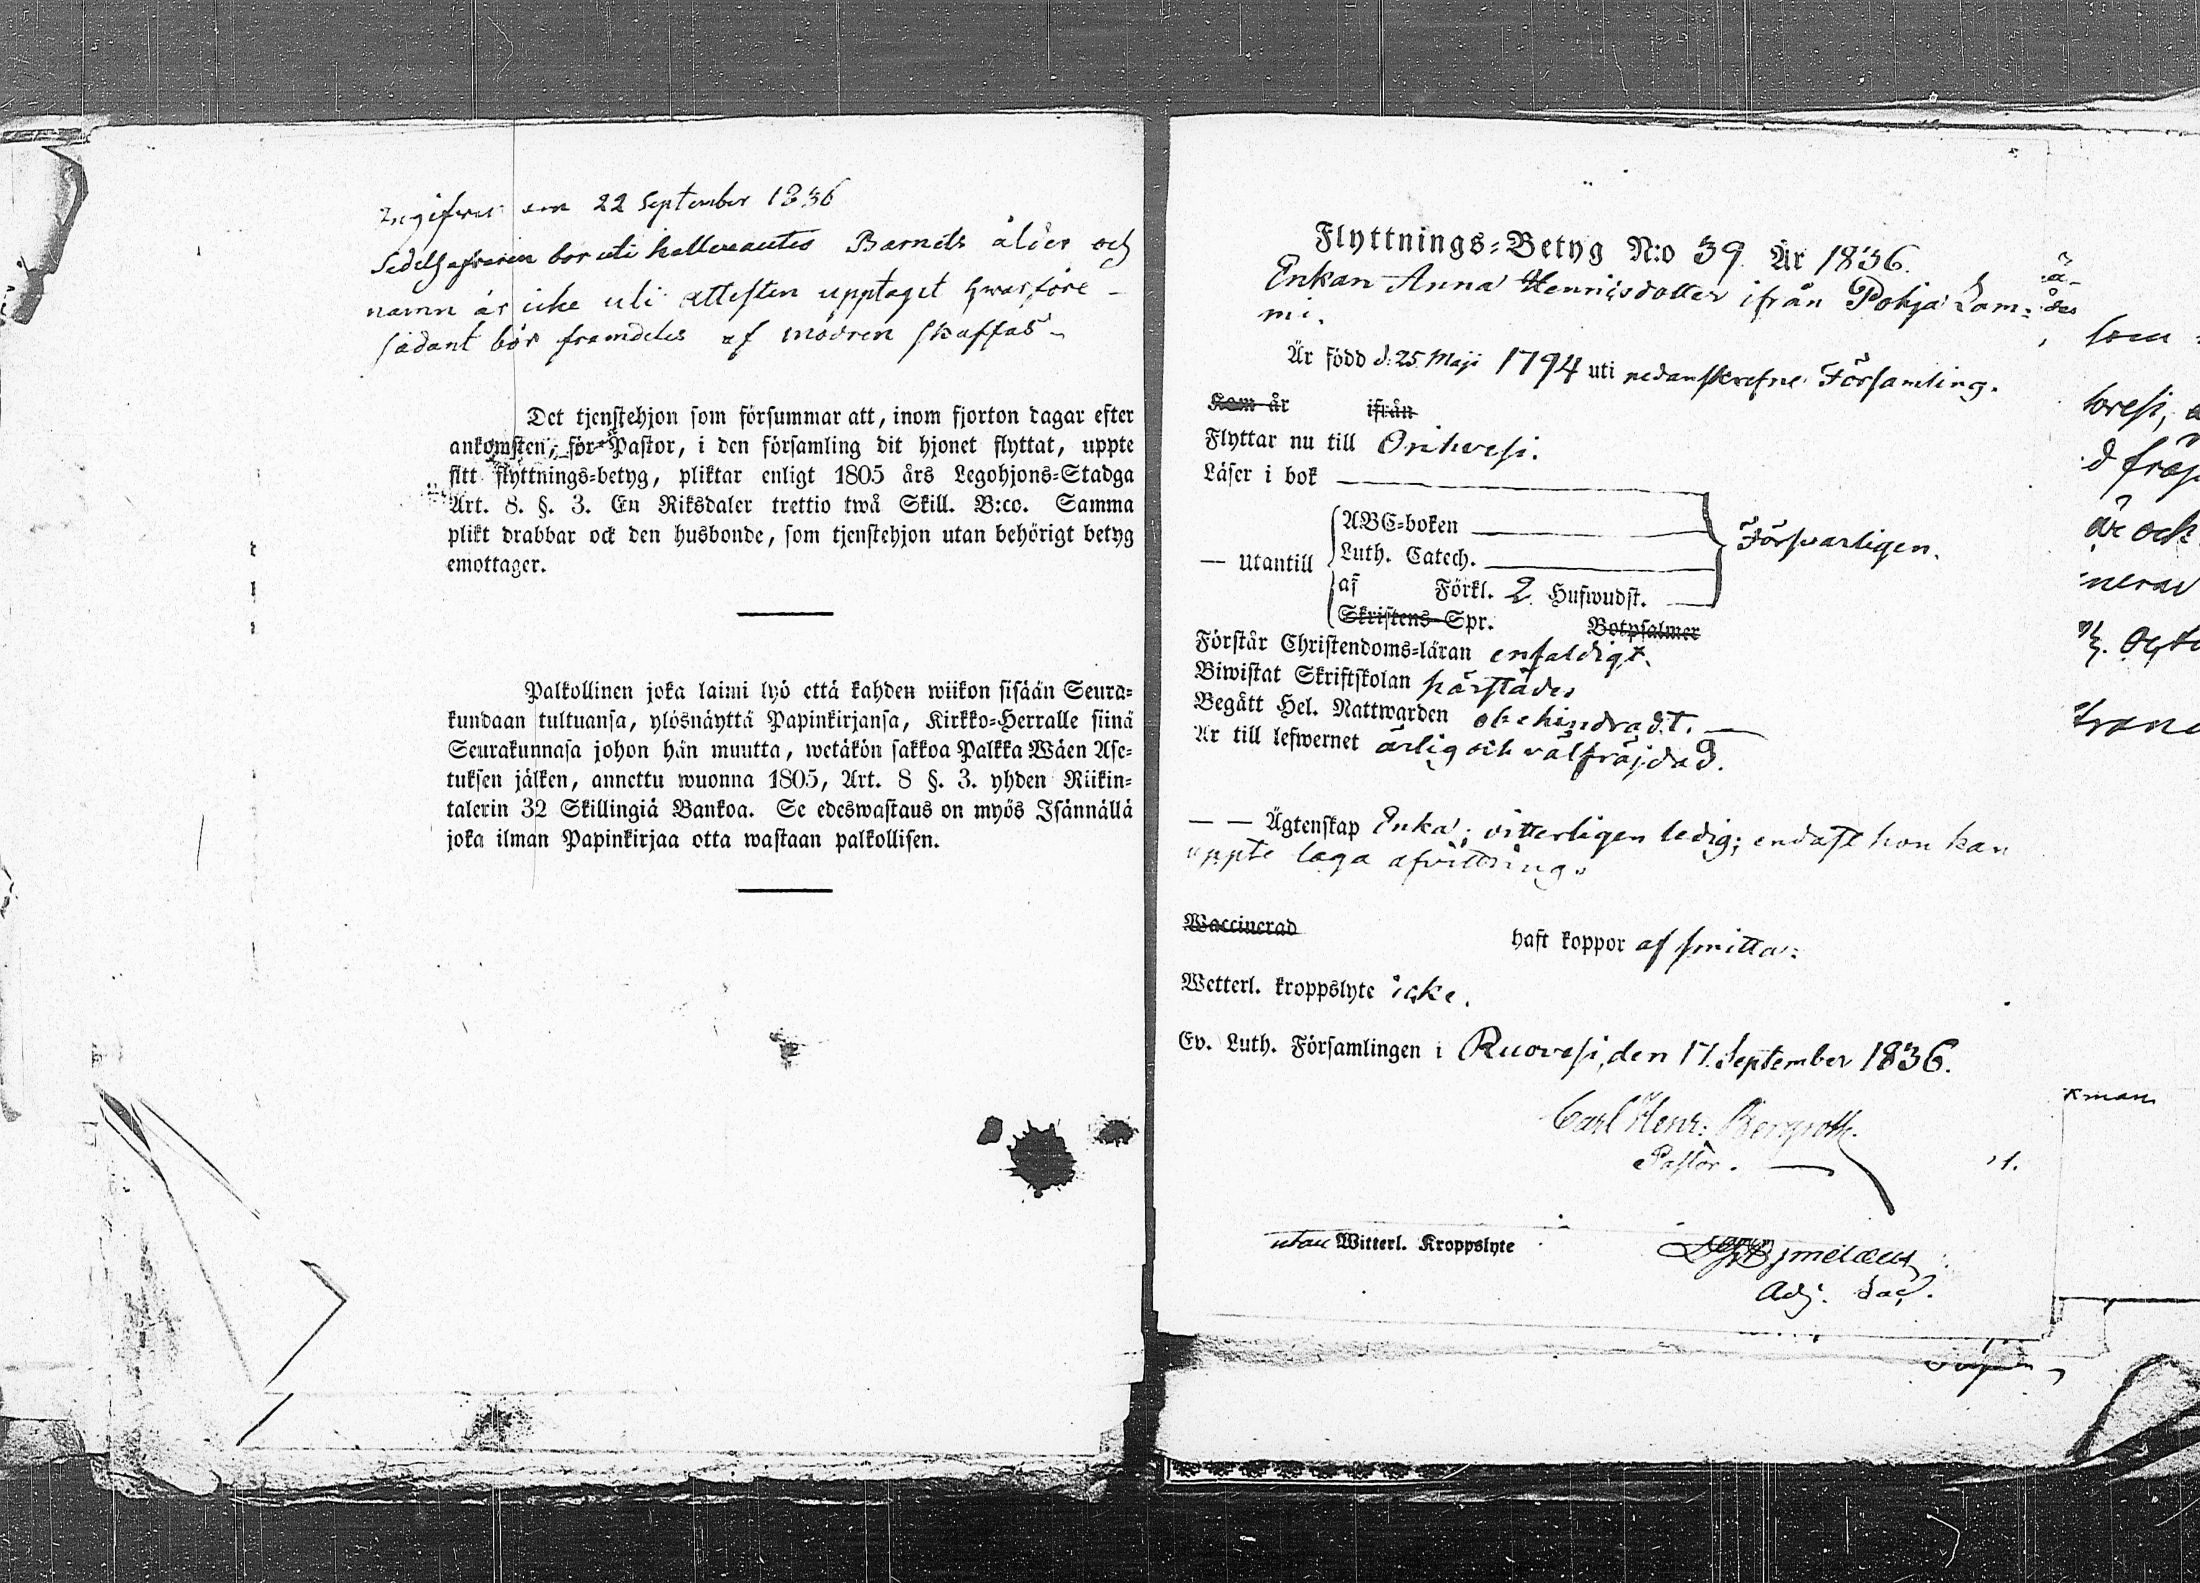 Ingifven den 22 September 1836
Sedelhafvaren bor uti Barnets ålder och
namn är icke uti attesten upptaget hwarföre
sådant bör framdeles af modren skaffas –
Det tjenstehjon som försummar att, inom fjorton dagar efter
ankomsten, för Pastor, i den församling dit hjonet flyttat, uppte
sitt flyttnings-betyg, pliktar enligt 1805 års Legohjons-Stadga
Art. 8. §. 3. En Riksdaler trettio twå Skill. B:co. Samma
plikt drabbar ock den husbonde, som tjenstehjon utan behörigt betyg
emottager.
Palkollinen joka laimi lyö että kahden wiikon sisään Seura-
kundaan tultuansa, ylösnäyttä Papinkirjansa, Kirkko-Herralle siinä
Seurakunnasa johon hän muutta, wetäkön sakkoa Palkka Wäen Ase-
tuksen jälken, annettu wuonna 1805, Art. 8 §. 3. yhden Riikin-
talerin 32 Skillingiä Bankoa. Se edeswastaus on myös Isännällä
joka ilman Papinkirjaa otta wastaan palkollisen.
Flyttnings-Betyg N:o 39. År 1836.
Enkan Anna Hennisdotter ifrån Pohja Lam-
mi.
Är född d. 25 Maji 1794 uti nedanskrefne Församling.
Kom år ifrån
Flyttar nu till Orihvesi.
Läser i bok
ABC-boken
— Utantill Luth. Catech. Försvarligen.
af Förkl. 2 Hufwudst.
Skriftens Spr. Botpsalmer
Förstår Christendoms-läran enfaldigt.
Biwistat Skriftskolan härstädes
Begått Hel. Nattwarden obehindradt. —
Är till lefwernet ärlig och välfräjdad.
— — Ägtenskap Enka; vitterligen ledig; endast hon kan
uppte laga afvittring.
Waccinerad haft koppor af smitta.
Wetterl. kroppslyte icke.
Ev. Luth. Församlingen i Ruovesi, den 17. September 1836.
Carl Henr: Bergroth.
Pastor.
utan Witterl. Kroppslyte
Adj. Sac.